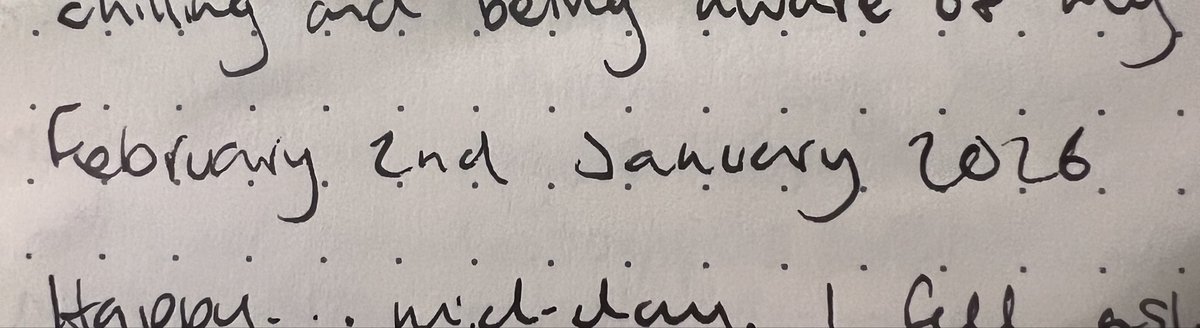 chilling and being aware of my
February 2nd January 2026
Happy... mid-day. I fell